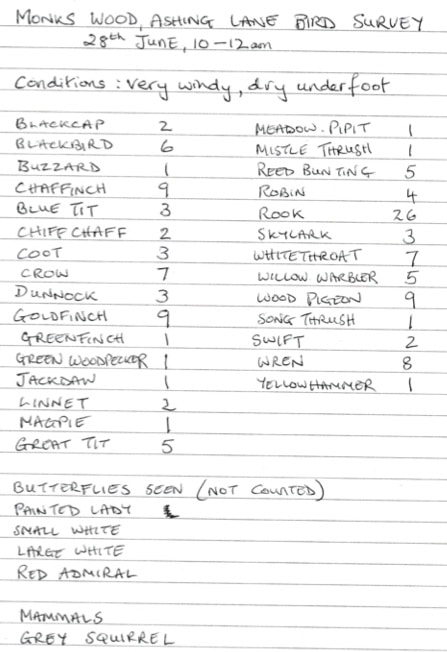 MONKS WOOD, ASHING LANE BIRD SURVEY
28th JUNE, 10-12am
Conditions : very windy, dry underfoot
BLACKCAP 2
BLACKBIRD 6
BUZZARD 1
CHAFFINCH 9
BLUE TIT 3
CHIFFCHAFF 2
COOT 3
CROW 7
DUNNOCK 3
GOLDFINCH 9
GREENFINCH 1
GREEN WOODPECKER 1
JACKDAW 1
LINNET 2
MAGPIE 1
GREAT TIT 5
MEADOW.PIPIT 1
MISTLE THRUSH 1
REED BUNTING 5
ROBIN 4
ROOK 26
SKYLARK 3
WHITETHROAT 7
WILLOW WARBLER 5
WOOD PIGEON 9
SONG THRUSH 1
SWIFT 2
WREN 8
YELLOWHAMMER 1
BUTTERFLIES SEEN (NOT COUNTED)
PAINTED LADY
SMALL WHITE
LARGE WHITE
RED ADMIRAL
MAMMALS
GREY SQUIRREL